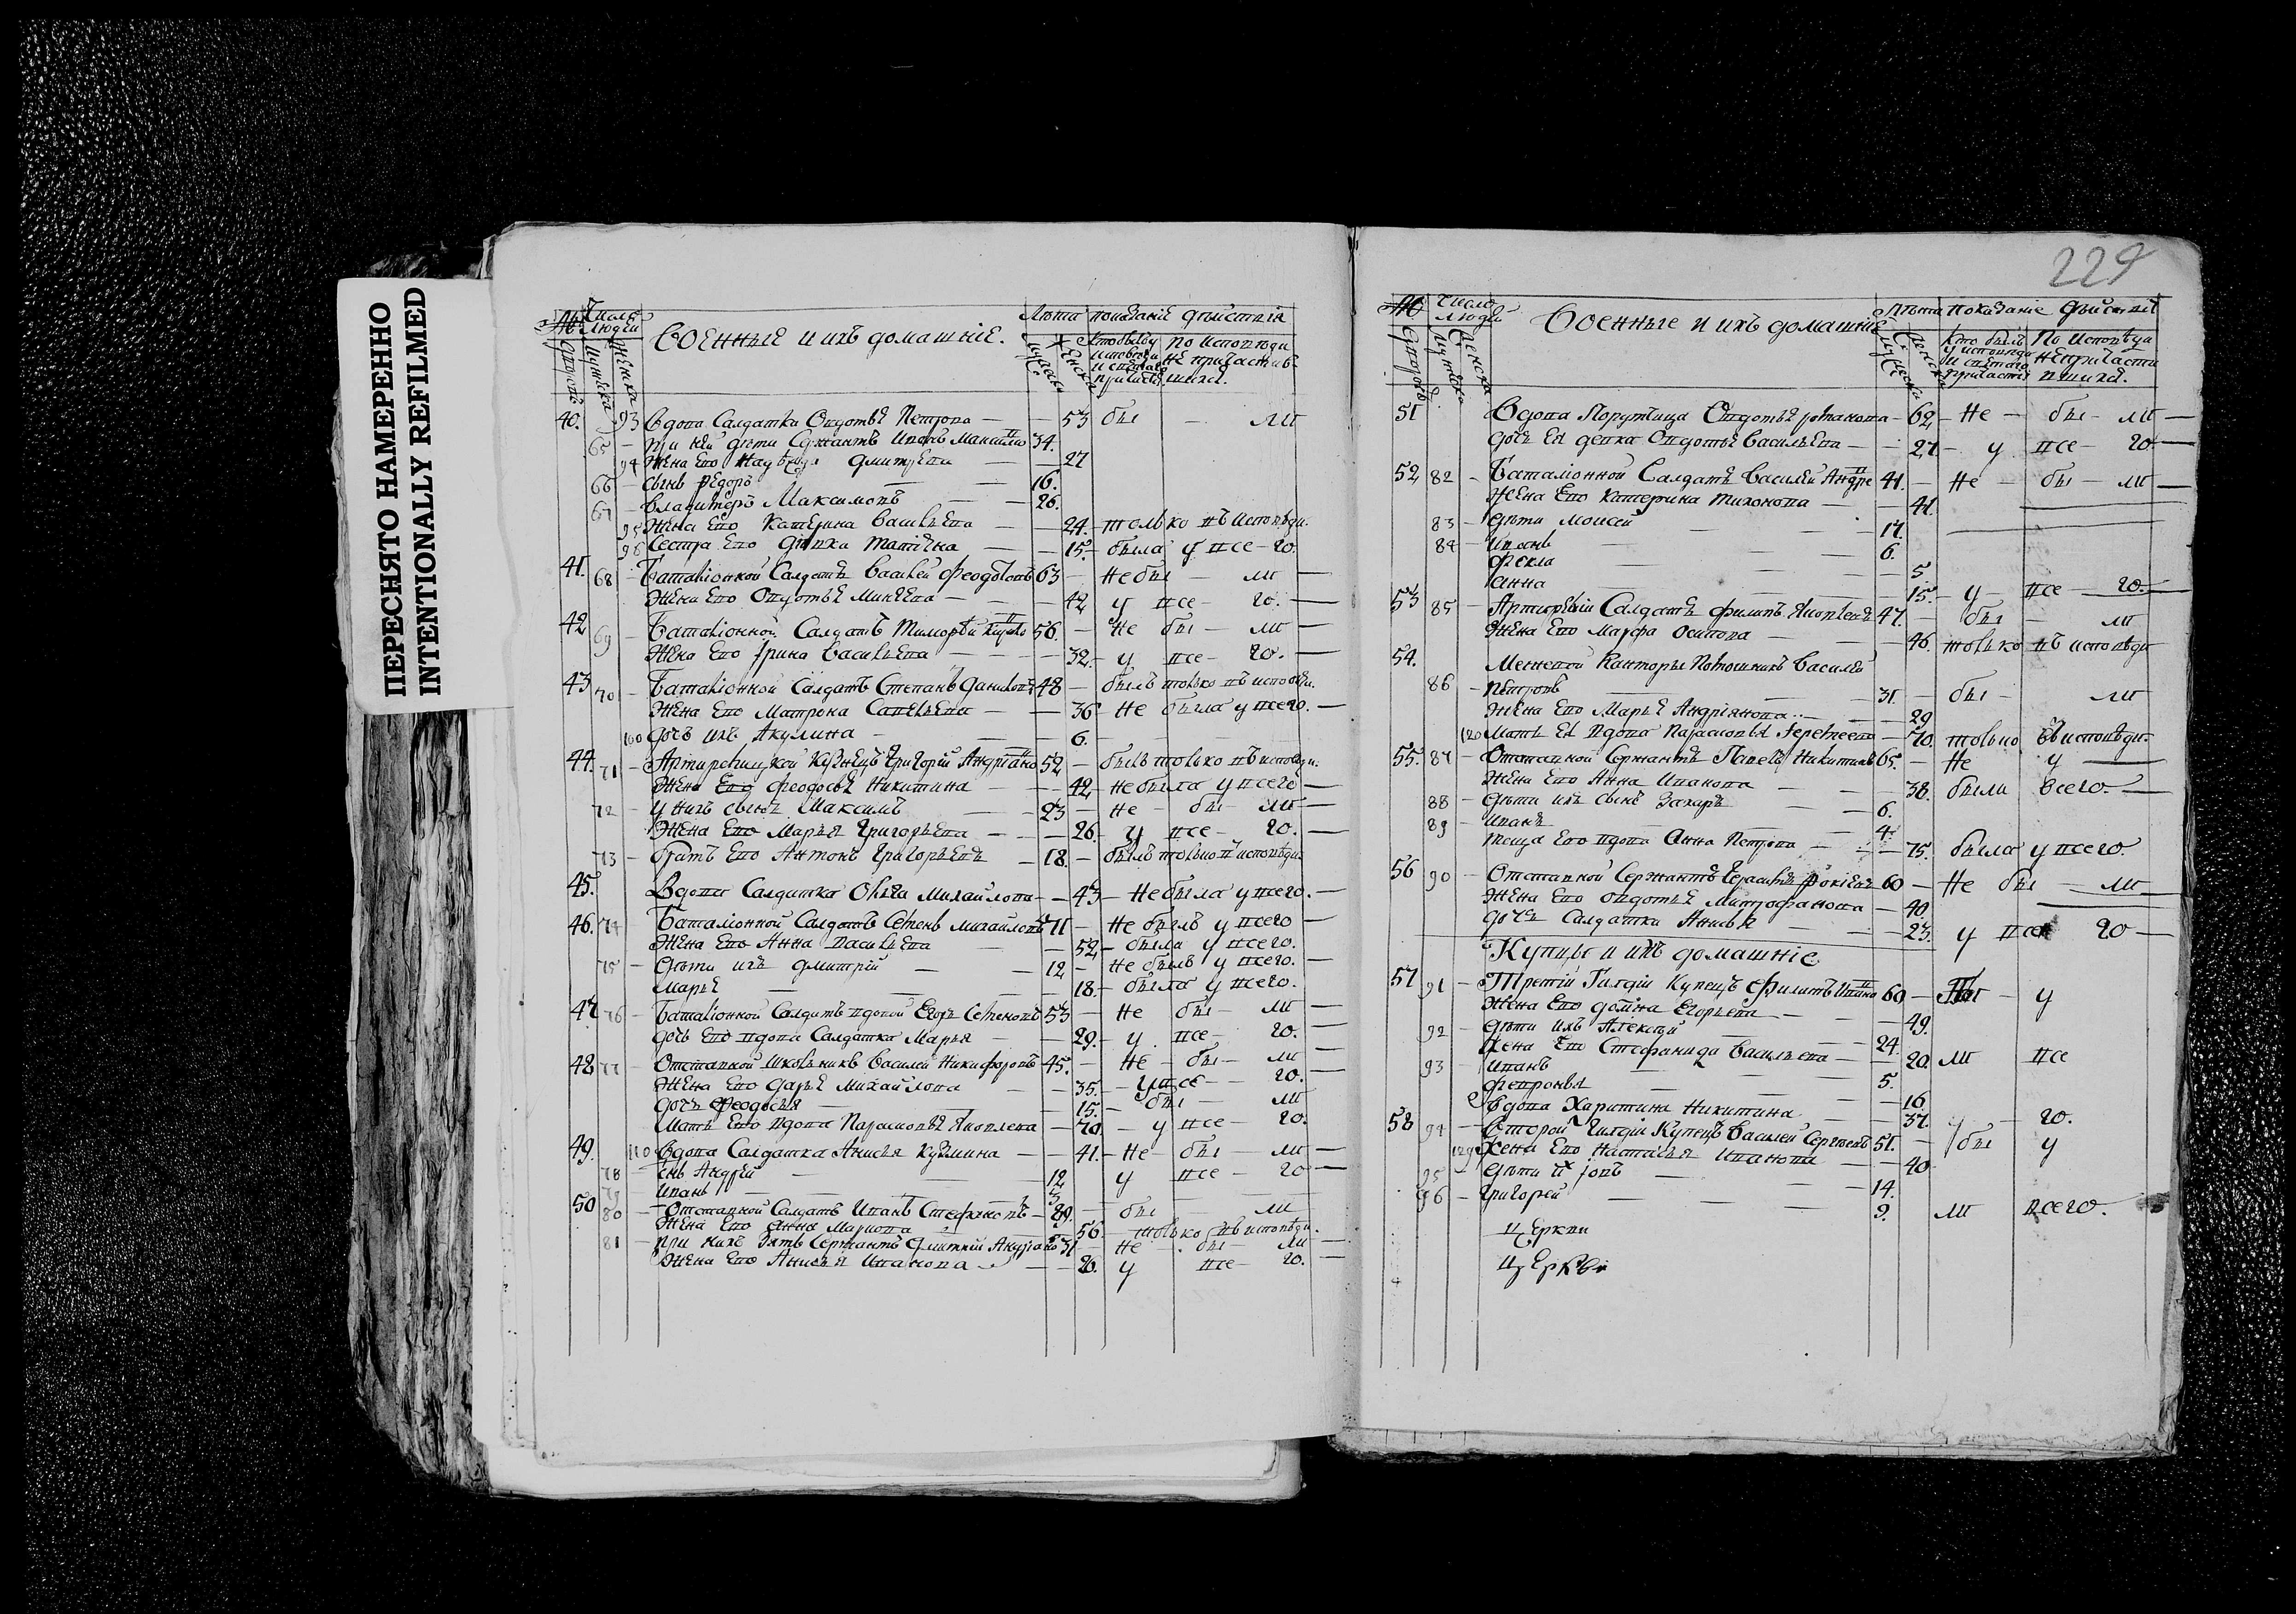 ПЕРЕСНЯТО НАМЕРЕННО
INTENTIONALLY REFILMED
Военные и ихъ домашніе.
40. 93 Вдова Салдатка Овдотья Петрова — — 53 бы — ли
65 — при ней дѣти Сержантъ Иванъ 34.
94 Жена Ево Надежда Дмитрева — — 27
66 — сынъ Федоръ — — 16.
67 — Владимеръ Максимовъ — 26.
95 Жена Ево Катерина Васильева — — 24. — только въ исповѣди.
96 Сестра Ево дѣвка Татіяна — — 15. — была у все — го.
41. 68 — Баталіонной Салдатъ Василей Феодотовъ 63 — Не бы — ли —
Жена Ево Овдотья Минеева — — 42 у все — го. —
42 69 — Баталіонной Салдатъ Тимофей 56. — Не бы — ли —
Жена Ево Ирина Васильева — — 32. — у все — го. —
43 70 — Баталіонной Салдатъ Степанъ Даниловъ 48 — былъ только въ исповѣди.
Жена Ево Матрона Савельева — — 36 — Не была у всего. —
100 дочь ихъ Акулина — — 6.
44. 71 — Кузнецъ Григорій Андріано 52 — былъ только въ исповѣди.
Жена Ево Феодосья Никитина — — 42 — Не была у всего —
72 — у нихъ сынъ Максимъ — 23 — Не — бы — ли —
Жена Ево Марья Григорьева — — 26. — у все — го. —
73 — братъ Ево Антонъ Григорьевъ — 18. — былъ только в исповѣди
45. Вдова Салдатка Ольга Михайлова — — 43 — Не была у всего. —
46. 74 Баталіонной Салдатъ Семенъ Михайловъ 71 — Не былъ у всего —
Жена Ево Анна Васильева — 52 — была у всего.
75 — Дѣти ихъ Дмитрій — — 12 — Не былъ у всего. —
Марья — — — 18. — была у всего.
47 76 — Баталіонной Салдатъ вдовой Егоръ Семеновъ 53 — Не бы — ли —
дочь Ево вдова Салдатка Марья — — 29. — у все — го. —
48 77 — Отставной Школьникъ Василей Никифоровъ 45. — Не — бы — ли —
Жена Ево Дарья Михайлова — — 35. — у все — го. —
дочь Феодосья — — 15. — бы — ли
Мать Ево вдова Парасковья Яковлева — 70. — у все — го.
49. 110 Вдова Салдатка Анисья Кузмина — — 41. — Не — бы — ли —
78 — Андрей — — 12 у все — го —
79 — Иванъ — — 3.
50 80 — Отставной Салдатъ Иванъ Стефановъ — 89. — бы — ли
Жена Ево — 56. — только въ исповѣди.
81 — при нихъ зять Сержантъ Дмитрій Андріано 31 — Не — бы — ли —
Жена Ево Анисья Иванова — — 26. у все — го. —
229
Военные и ихъ домашніе
51 Вдова Порутчица Овдотья — 62 — Не — бы — ли —
дочь Ея девка Овдотья Васильева — — 27 — у все — го —
52 82 — Баталіонной Салдатъ Василей Андре 41. — Не — бы — ли —
Жена Ево Катерина Тихонова — — 41.
83 — Дѣти Моисей — 17.
84 — Иванъ — — 6.
Фекла — — 5
Анна — — 15. — у все — го. —
53 85 — Салдатъ Филипъ Яковлевъ 47. — бы — ли
Жена Ево Марфа Осипова — — 46. только въ исповѣди
54. Межевой Канторы Василей
86 — Петровъ — — 31. — бы — ли
Жена Ево Марья Андріянова — — 29
120 Мать Ея вдова Парасковья — 70. только въ исповѣди.
55. 87 — Отставной Сержантъ Павелъ Никитинъ 65. — Не у —
Жена Ево Анна Иванова — — 38. были всего. —
88 — Дѣти ихъ сынъ Захаръ — 6.
89 — Иванъ — 4.
теща Ево вдова Анна Петрова — — 75. была у всего.
56 90 — Отставной Сержантъ 60 — Не бы — ли —
Жена Ево Овдотья Митрофанова — 40.
дочь Салдатка Анисья — — 23. у все го —
Купцы и ихъ домашніе
57 91 — Третій Гилдіи Купецъ Филипъ 60 — бы — у
Жена Ево Домна Егорьева — — 49.
92 — Дѣти ихъ Алексѣй — — 24.
Жена Ево Стефанида Васильева — — 20. ли все
93 — Иванъ — — 5.
— — 16
Вдова Харитина Никитина — 37. го.
58 94 — Второй Гилдіи Купецъ Василей Сергѣевъ 51. — бы у
Жена Ево Настасья Иванова — — 40
95 — Дѣти и Іовъ — — 14.
96 — Григорей — — 9. ли всего.
Церкви
Церкви